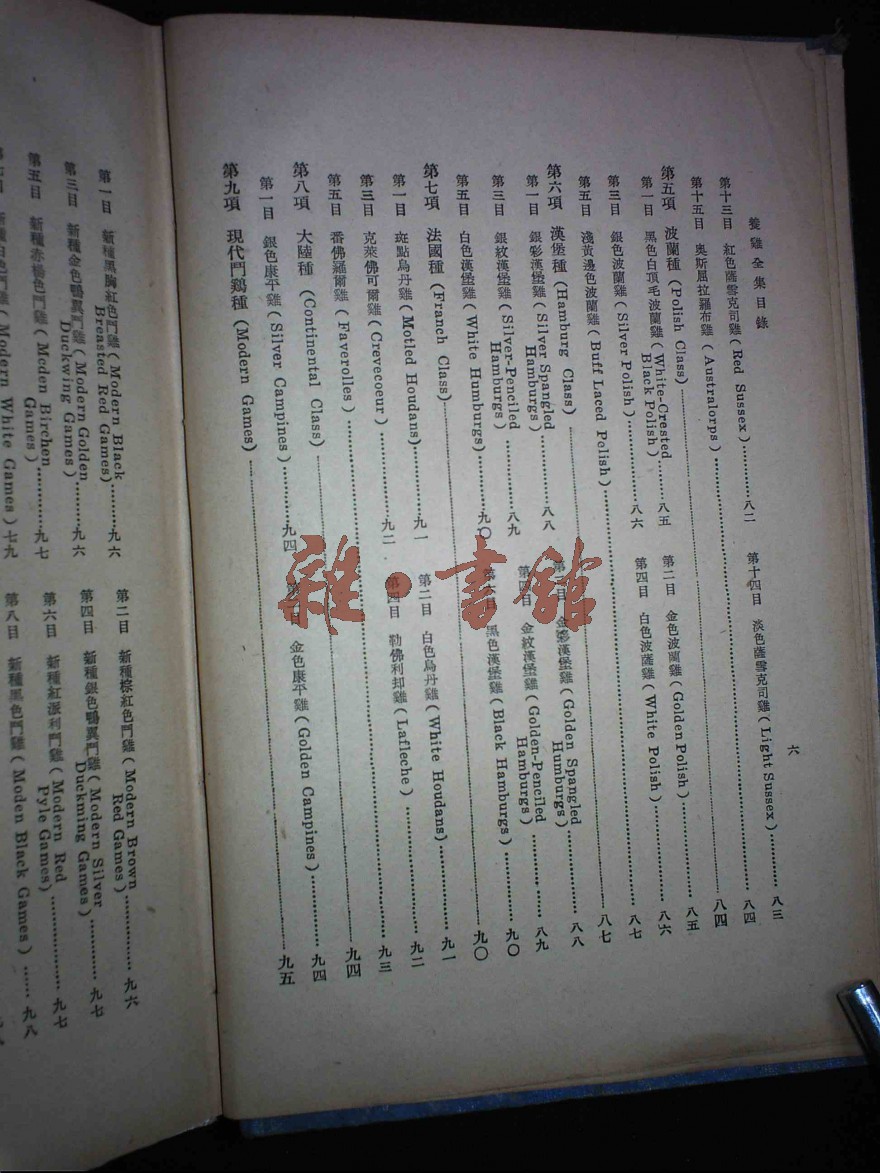 養雞全集目錄
六
第十三目 紅色薩雪克司雞(Red Sussex)………八二
第十四目 淡色薩雪克司雞(Light Sussex)………八三
第十五目 奧斯屈拉羅布雞(Australorps)………八四
第五項 波蘭種(Polish Class)………八四
第一目 黑色白頂毛波蘭雞(White-Crested Black Polish)………八五
第二目 金色波蘭雞(Golden Polish)………八五
第三目 銀色波蘭雞(Silver Polish)………八六
第四目 白色波薩雞(White Polish)………八六
第五目 淺黃邊色波蘭雞(Buff Laced Polish)………八七
第六項 漢堡種(Hamburg Class)………八七
第一目 銀彩漢堡雞(Silver Spangled Hamburgs)………八八
金彩漢堡雞(Golden Spangled Humburgs)………八八
第三目 銀紋漢堡雞(Silver-Penciled Hamburgs)………八九
第四目 金紋漢堡雞(Golden-Penciled Hamburgs)………八九
第五目 白色漢堡雞(White Humburgs)………九〇
第六目 黑色漢堡雞(Black Hamburgs)………九〇
第七項 法國種(Franch Class)………九〇
第一目 斑點烏丹雞(Motled Houdans)………九一
第二目 白色烏丹雞(White Houdans)………九一
第三目 克萊佛可爾雞(Crevecoeur)………九二
第四目 勒佛利却雞(Lafleche)………九二
第五目 番佛羅爾雞(Faverolles)………九三
第八項 大陸種(Continental Class)………九四
第一目 銀色康平雞(Silver Campines)………九四
第二目 金色康平雞(Golden Campines)………九四
第九項 現代鬥鷄種(Modern Games)………九五
第一目 新種黑胸紅色鬥雞(Modern Black Breasted Red Games)………九六
第二目 新種棕紅色鬥雞(Modern Brown Red Games)………九六
第三目 新種金色鴨翼鬥雞(Modern Golden Duckwing Games)………九六
第四目 新種銀色鴨翼鬥雞(Modern Silver Duckming Games)………九七
第五目 新種赤楊色鬥雞(Moden Birchen Games)………九七
第六目 新種紅派利鬥雞(Modern Red Pyle Games)………九七
白色鬥雞(Modern White Games)七九
第八目 新種黑色鬥雞(Moden Black Games)……九八
雜·書館